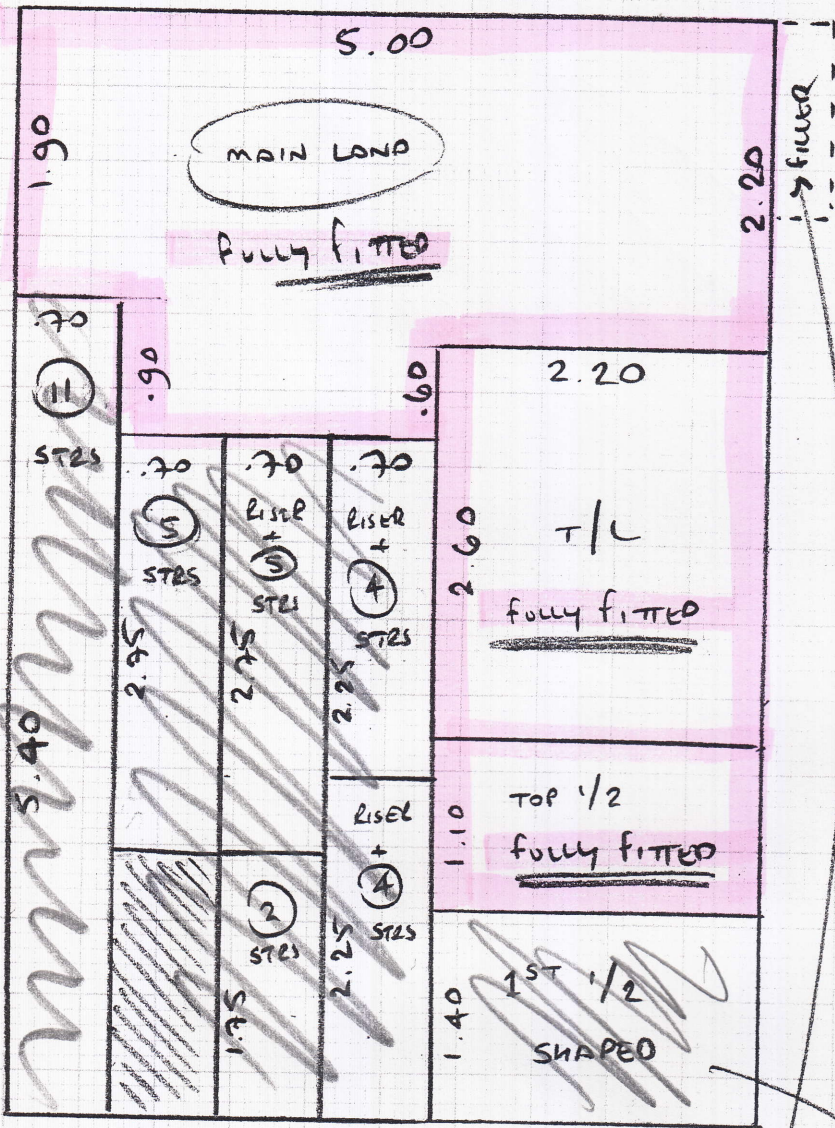 5.00
1.90
MAIN LAND
FULLY FITTED
2.20
FILLER
.70
11
STRS
5.40
.90
.60
.70
5
STRS
2.75
.70
RISER
+
5
STRS
2.75
.70
RISER
+
4
STRS
2.25
2.20
2.60
T/L
FULLY FITTED
2
STRS
1.75
RISER
+
4
STRS
2.25
1.10
TOP 1/2
FULLY FITTED
1.40
1ST 1/2
SHAPED